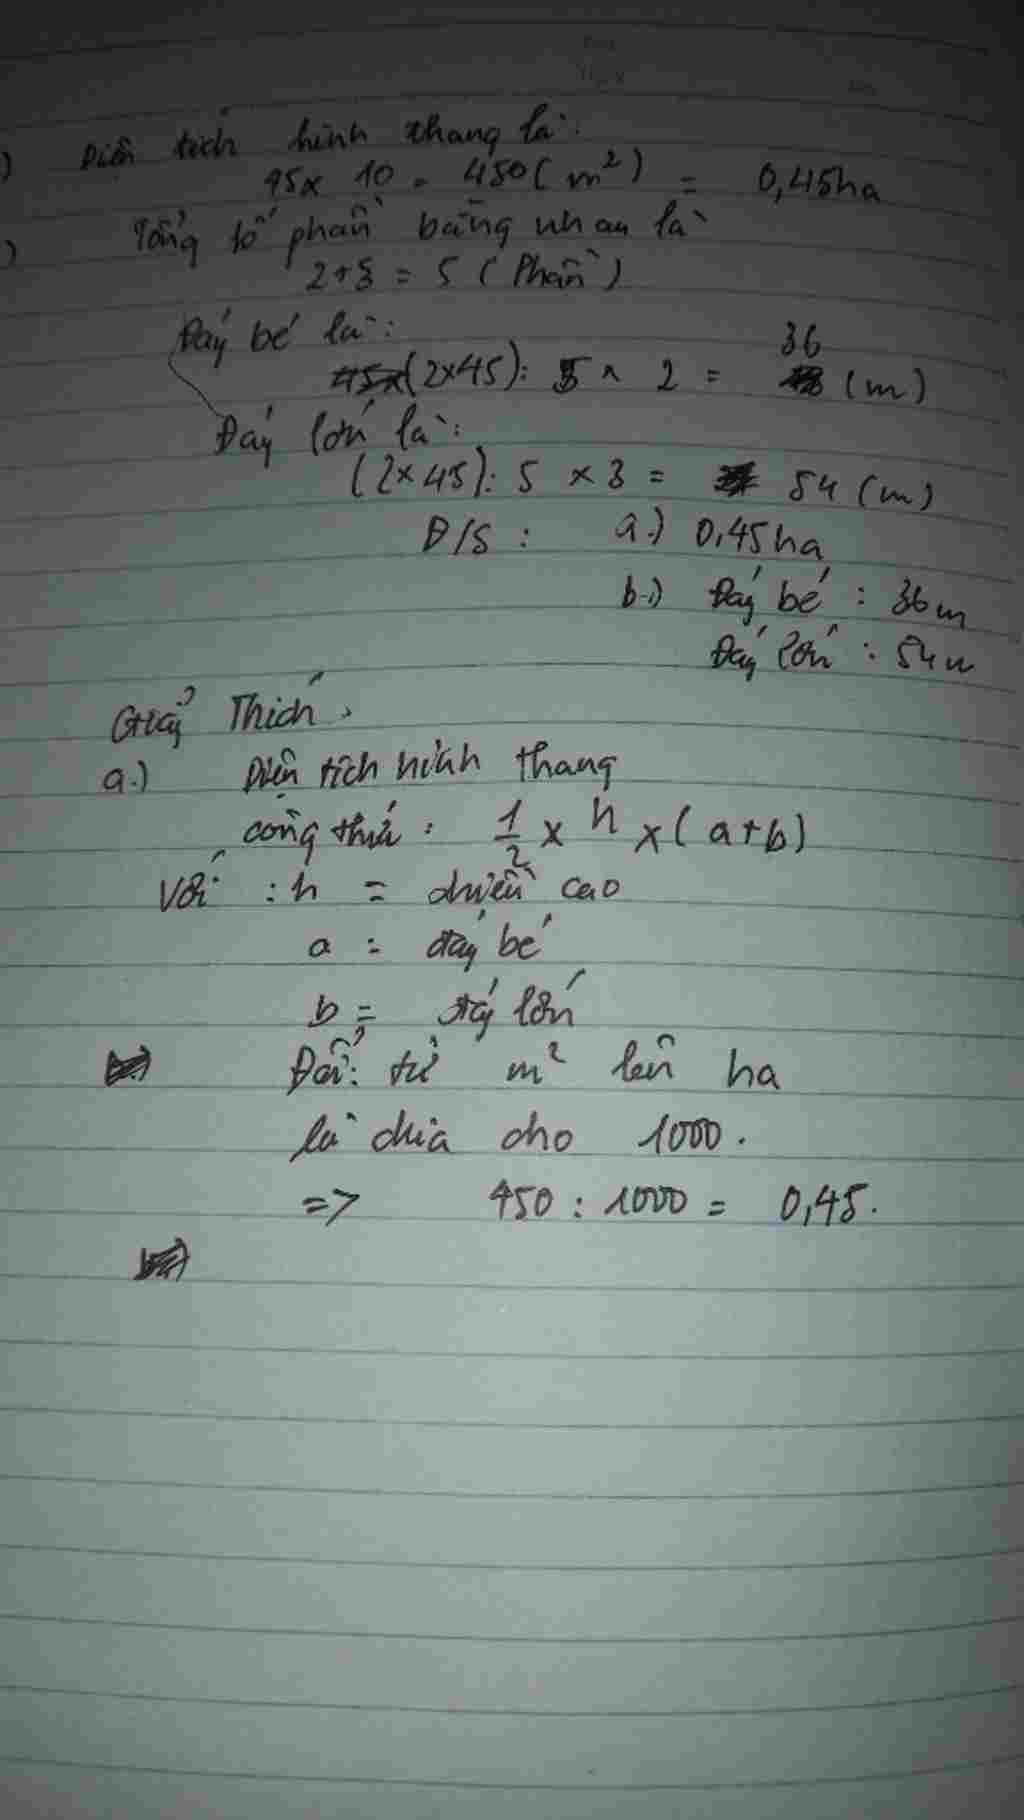 ) Diện tích hình thang là:
45 x 10 = 450 ( m² ) = 0,45ha
) Tổng số phần bằng nhau là
2 + 3 = 5 ( Phần )
Đáy bé là :
(2x45) : 5 x 2 = 36 (m)
Đáy lớn là :
(2x45) : 5 x 3 = 54 (m)
Đ/S : a.) 0,45ha
b.) Đáy bé : 36m
Đáy lớn : 54m
Giải Thích .
a.) Diện tích hình thang
công thức : 1/2 x h x ( a+b )
Với : h = chiều cao
a = đáy bé
b = đáy lớn
Đổi : từ m² lên ha
là chia cho 1000 .
=> 450 : 1000 = 0,45.